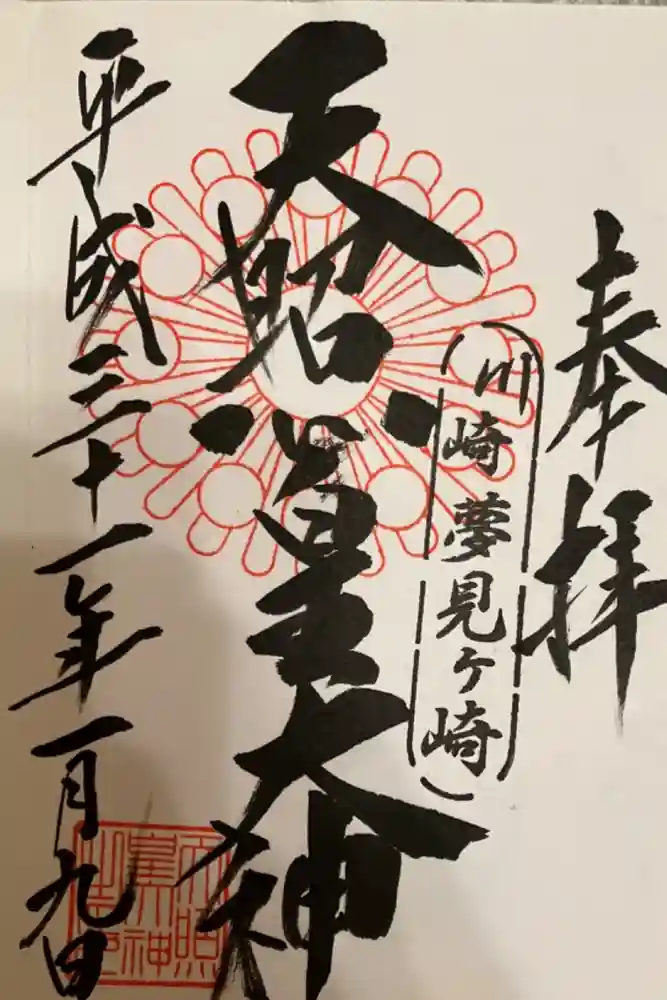 奉拝
(川崎夢見ヶ崎)
天照皇大神
平成三十一年一月九日